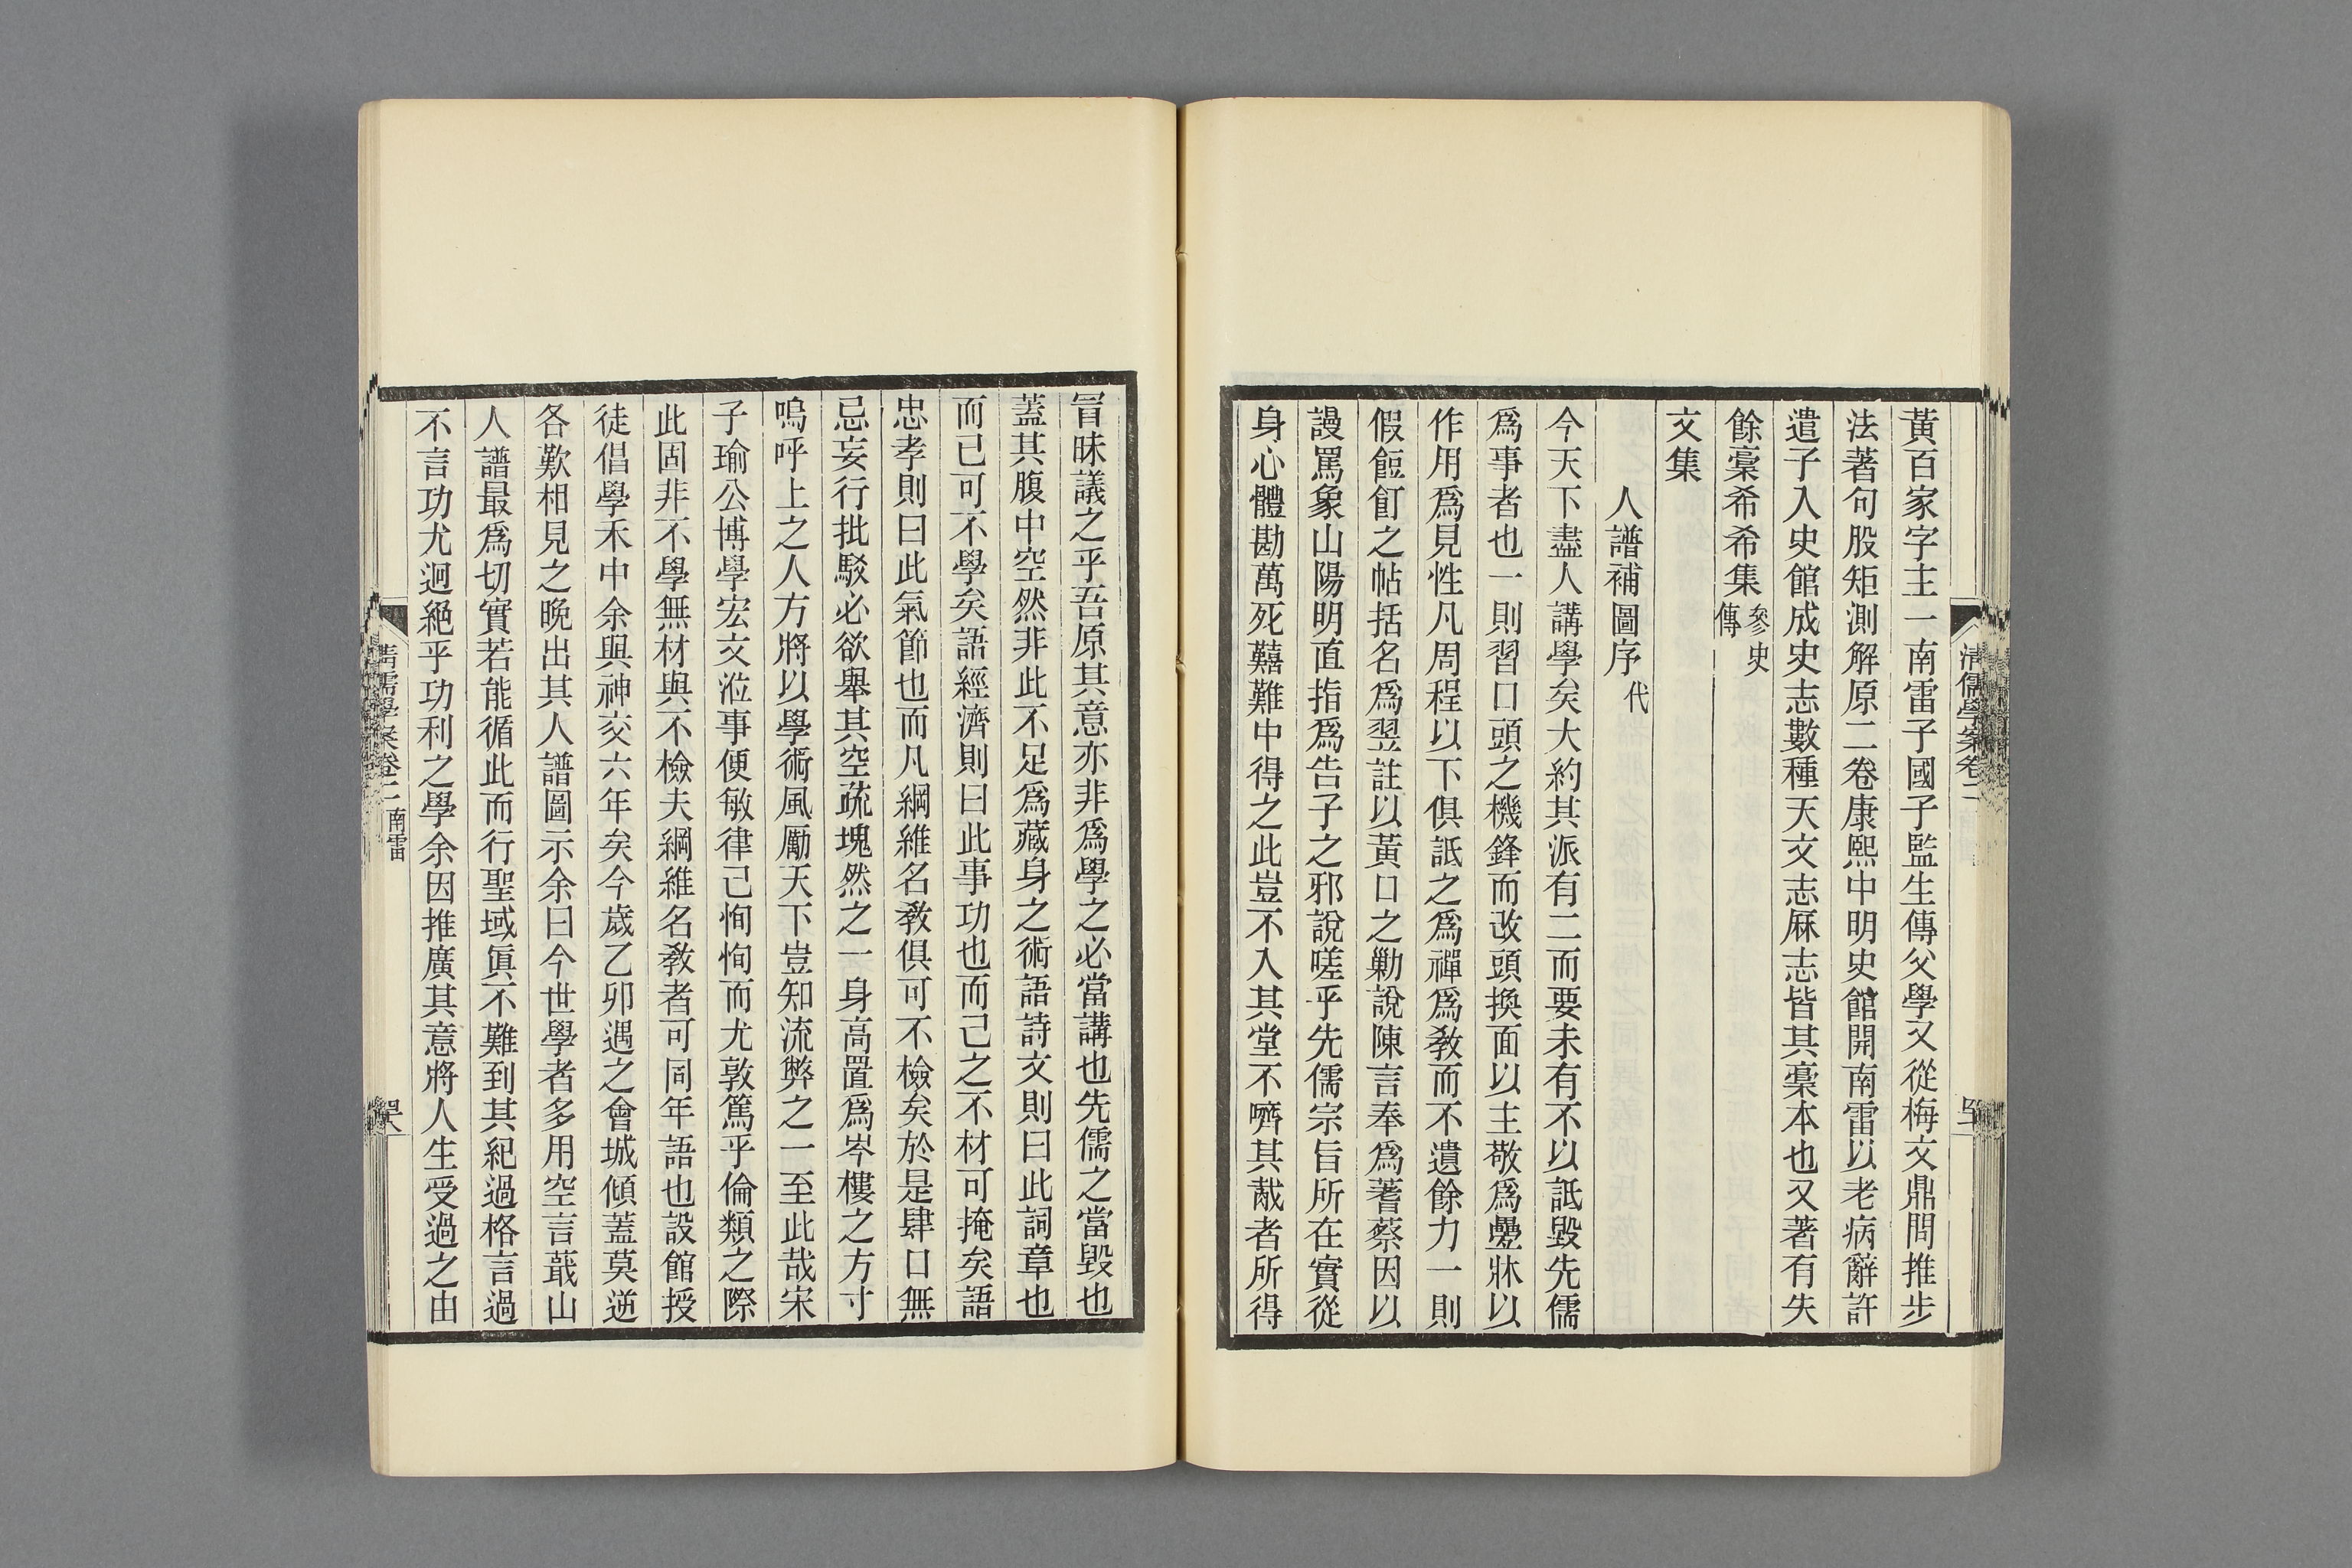 黃百家字主一南雷子國子監生傳父學又從梅文鼎問推步
法著句股矩測解原二卷康熙中明史館開南雷以老病辭許
遣子入史館成史志數種天文志厤志皆其稾本也又著有失
餘稾希希集參史傳
文集
人譜補圖序代
今天下盡人講學矣大約其派有二而要未有不以詆毀先儒
爲事者也一則習口頭之機鋒而改頭換面以主敬爲疊牀以
作用爲見性凡周程以下俱詆之爲禪爲教而不遺餘力一則
假餖飣之帖括名爲翌註以黃口之勦說陳言奉爲蓍蔡因以
謾罵象山陽明直指爲告子之邪說嗟乎先儒宗旨所在實從
身心體勘萬死囏難中得之此豈不入其堂不嚌其胾者所得
冒昧議之乎吾原其意亦非爲學之必當講也先儒之當毀也
蓋其腹中空然非此不足爲藏身之術語詩文則曰此詞章也
而已可不學矣語經濟則曰此事功也而己之不材可掩矣語
忠孝則曰此氣節也而凡綱維名教俱可不檢矣於是肆口無
忌妄行批駮必欲舉其空疏塊然之一身高置爲岑樓之方寸
嗚呼上之人方將以學術風厲天下豈知流弊之一至此哉宋
子瑜公博學宏文涖事便敏律己恂恂而尤敦篤乎倫類之際
此固非不學無材與不檢夫綱維名教者可同年語也設館授
徒倡學禾中余與神交六年矣今歲乙卯遇之會城傾蓋莫逆
各歎相見之晚出其人譜圖示余曰今世學者多用空言蕺山
人譜最爲切實若能循此而行聖域眞不難到其紀過格言過
不言功尤迥絕乎功利之學余因推廣其意將人生受過之由
清儒學案卷二
清儒學案卷二 南雷